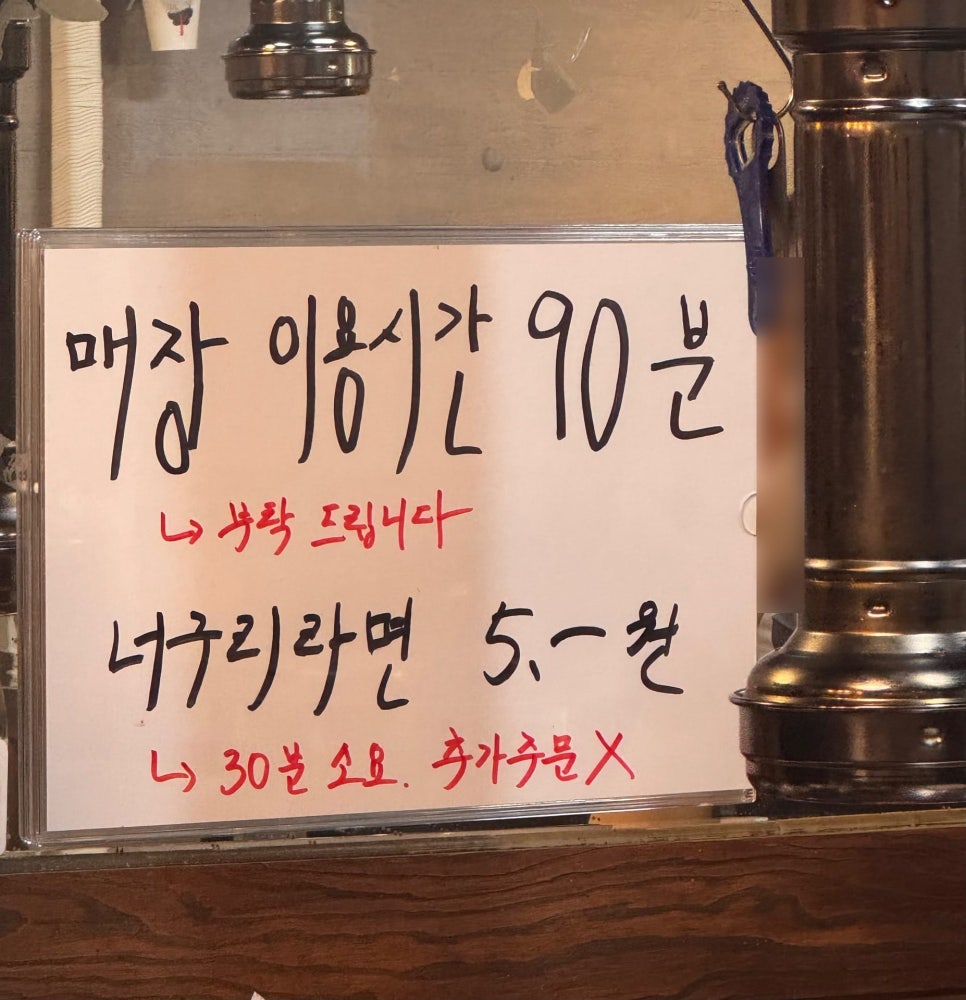 매장 이용시간 90분
↳ 부탁 드립니다
너구리라면 5,-원
↳ 30분 소요. 추가주문X